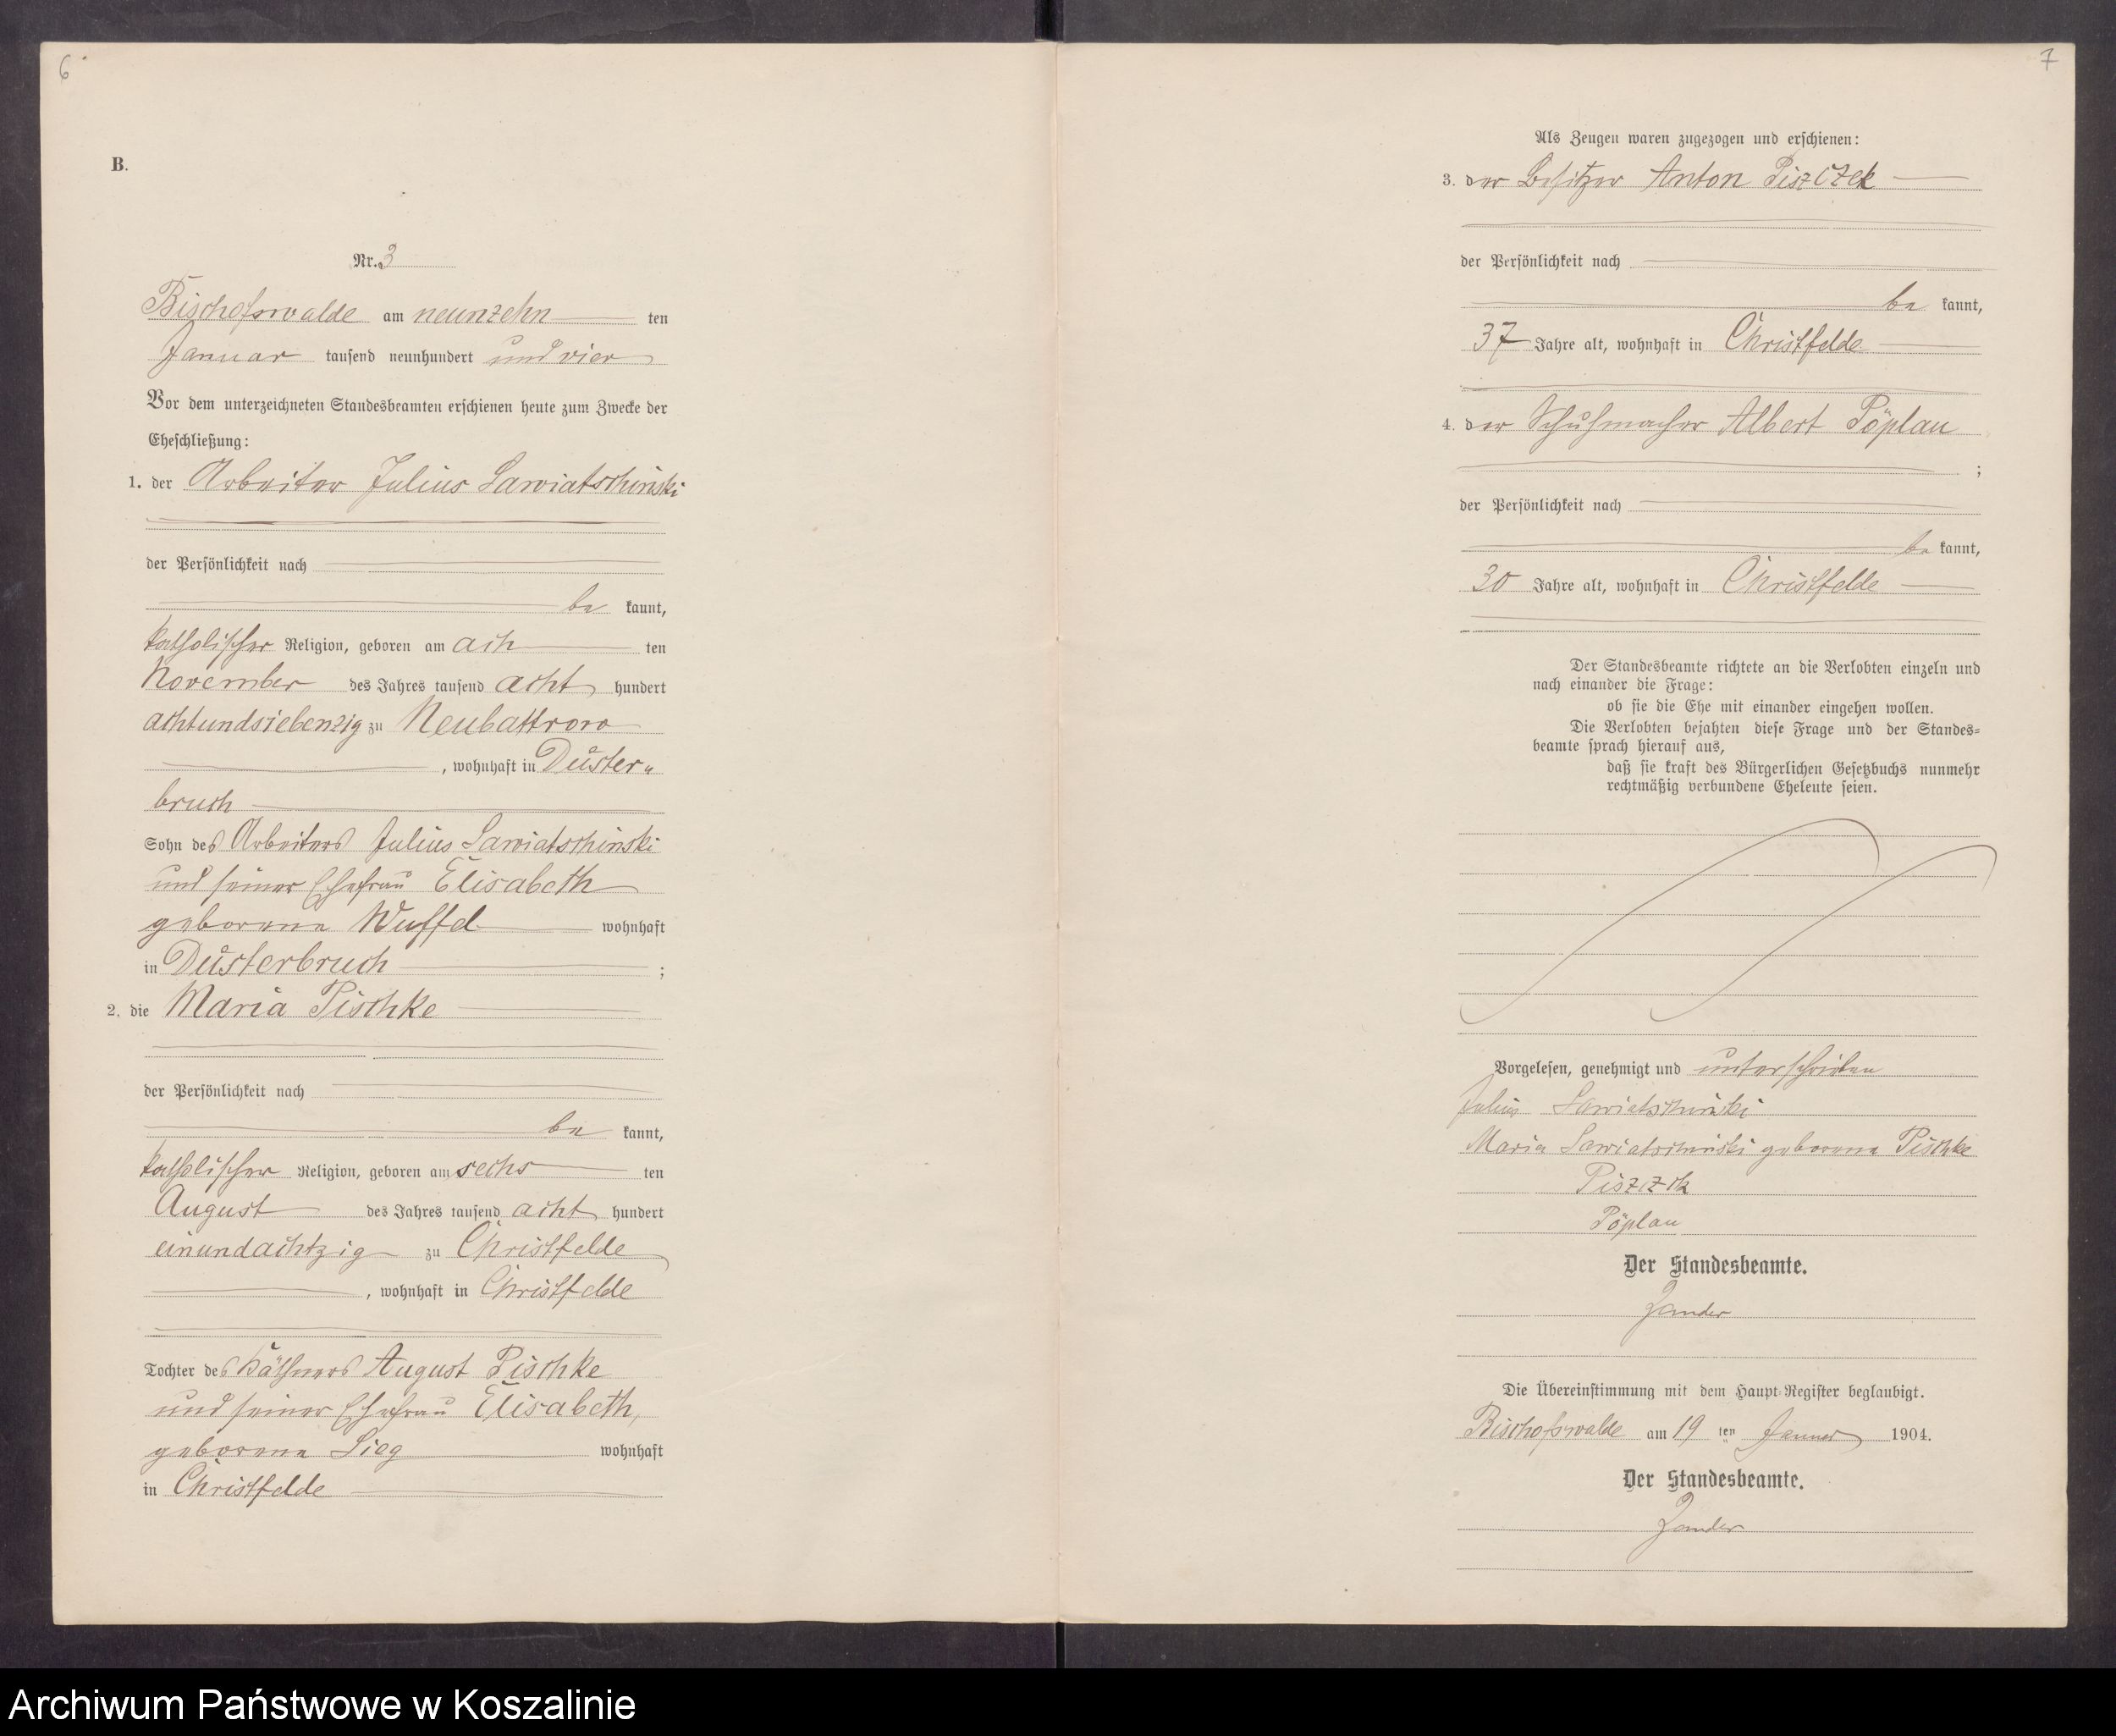 6
B.
Nr. 3
Bischofswalde am neunzehn ten
Januar tausend neunhundert und vier
Vor dem unterzeichneten Standesbeamten erschienen heute zum Zwecke der
Eheschließung:
1. der Arbeiter Julius Lawiatschinski
der Persönlichkeit nach
be kannt,
katholischer Religion, geboren am ach ten
November des Jahres tausend acht hundert
achtundsiebenzig zu Neubattrow
, wohnhaft in Düster„
bruch
Sohn des Arbeiters Julius Lawiatschinski
und seiner Ehefrau Elisabeth
geborene Wuffel wohnhaft
in Düsterbruch ;
2. die Maria Pischke
der Persönlichkeit nach
be kannt,
katholischer Religion, geboren am sechs ten
August des Jahres tausend acht hundert
einundachtzig zu Christfelde
, wohnhaft in Christfelde
Tochter des Käthners August Pischke
und seiner Ehefrau Elisabeth,
geborene Sieg wohnhaft
in Christfelde
7
Als Zeugen waren zugezogen und erschienen:
3. der Besitzer Anton Piszczek
der Persönlichkeit nach
be kannt,
37 Jahre alt, wohnhaft in Christfelde
4. der Schuhmacher Albert Pöplau
;
der Persönlichkeit nach
be kannt,
30 Jahre alt, wohnhaft in Christfelde
Der Standesbeamte richtete an die Verlobten einzeln und
nach einander die Frage:
ob sie die Ehe mit einander eingehen wollen.
Die Verlobten bejahten diese Frage und der Standes-
beamte sprach hierauf aus,
daß sie kraft des Bürgerlichen Gesetzbuchs nunmehr
rechtmäßig verbundene Eheleute seien.
Vorgelesen, genehmigt und unterschrieben
Julius Lawiatschinski
Maria Lawiatschinski geborene Pischke
Piszczek
Pöplau
Der Standesbeamte.
Zander
Die Übereinstimmung mit dem Haupt-Register beglaubigt.
Bischofswalde am 19 ten Januar 1904.
Der Standesbeamte.
Zander
Archiwum Państwowe w Koszalinie